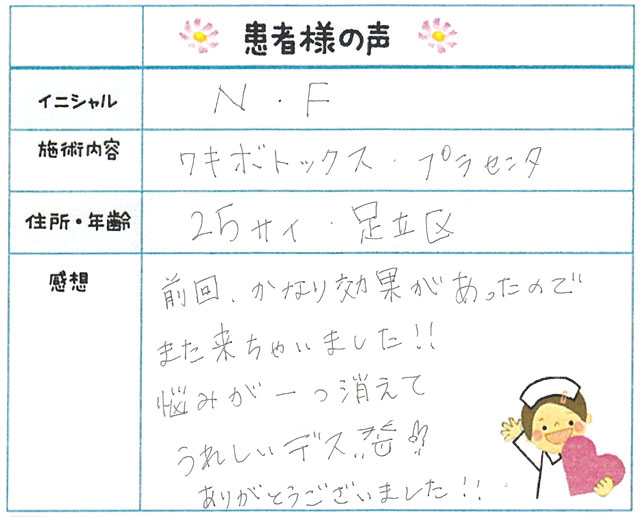 患者様の声
イニシャル N・F
施術内容 ワキボトックス・プラセンタ
住所・年齢 25サイ・足立区
感想 前回、かなり効果があったので
また来ちゃいました!!
悩みが一つ消えて
うれしいデス
ありがとうございました!!